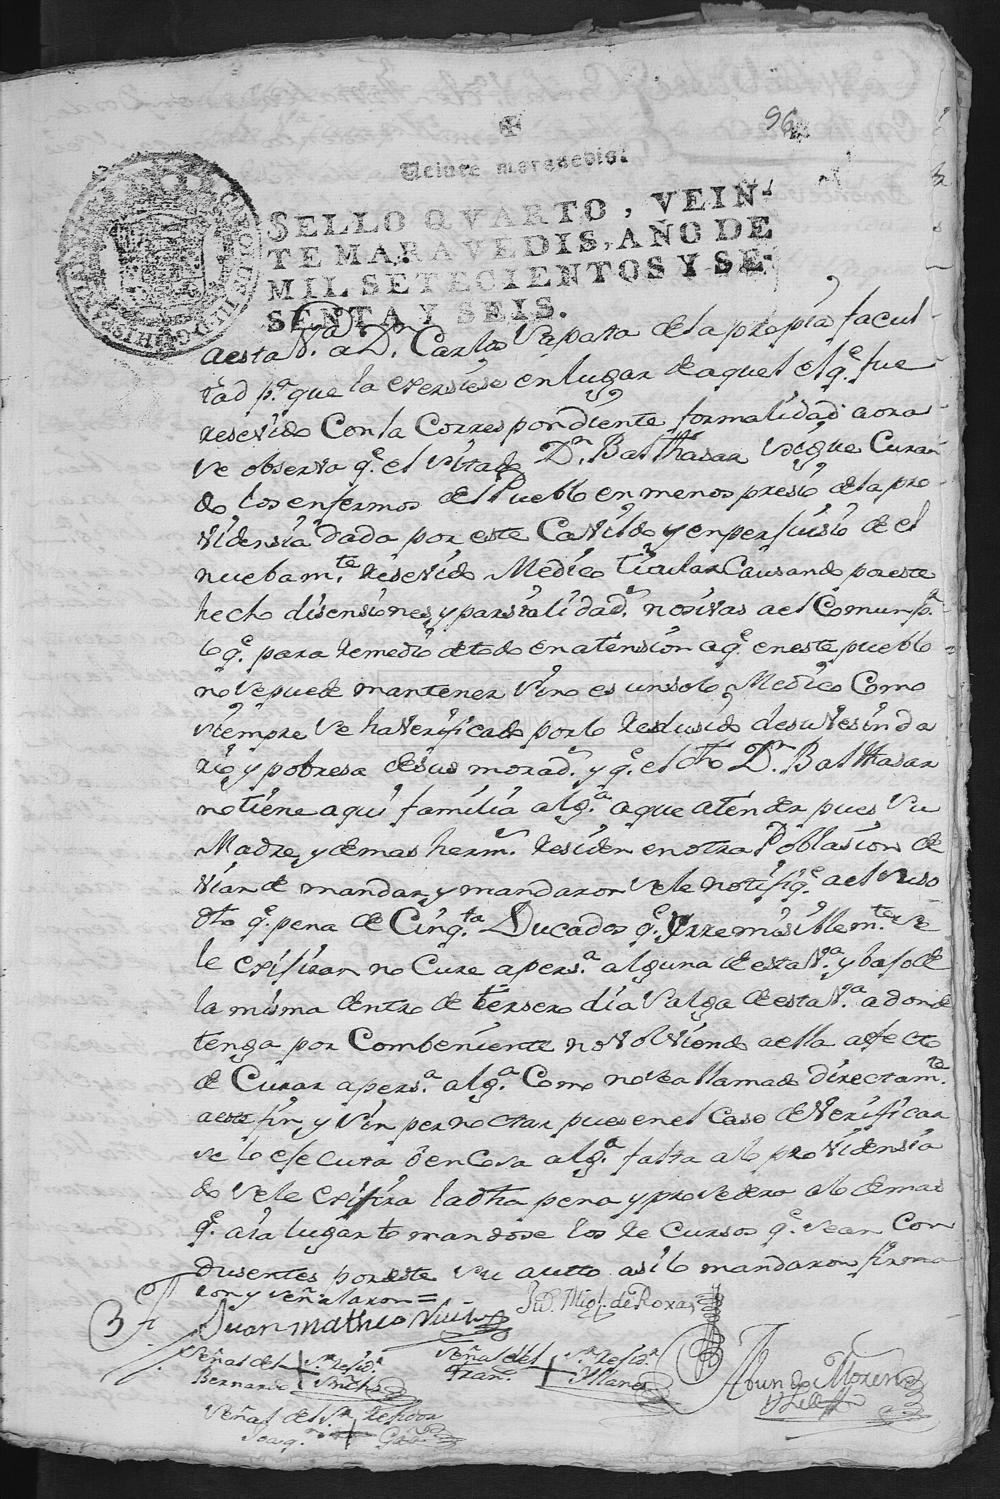 96
Veinte maravedis.
SELLO QVARTO, VEIN-
TE MARAVEDIS, AÑO DE
MIL SETECIENTOS Y SE-
SENTA Y SEIS.
a esta V.ª a D.n Carlos Zapata de la propia facul
tad p.ª que la exersiese en lugar de aquel el q.e fue
resevido Con la Correspondiente formalidad aora
se observa q.e el sitado D.n Balthasar sigue Curan
do los enfermos del Pueblo en menospresio de la pro
videnssia dada por este Cavildo y en perjuisio de el
nuebam.te resevido Medico titular Causando por este
hecho disensiones, y parsialidad.s nosivas a el Comun p.r
lo q.e para remedio de todo en atension a q.e en este pueblo
no se puede mantener sino es un solo Medico Como
siempre se ha verificado por lo redusido de su vesinda
rio y pobresa de sus morad.s y q.e el dho D.n Balthasar
no tiene aqui familia alg.ª a que atender pues su
Madre, y demas herm.s residen en otra Poblasion de
vian de mandar, y mandaron se le notifiq.e a el suso
dho q.e pena de Cinq.ta Ducados q.e Yrremisiblem.te se
le exsixan no Cure a pers.ª alguna de esta V.ª y bajo de
la misma dentro de tersero dia salga de esta V.ª a donde
tenga por Combeniente no volviendo a ella a efecto
de Curar a pers.ª alg.ª Como no sea llamado directam.te
a este fin, y sin pernoctar pues en el Caso de verificar
se lo ejecuta o en Cosa alg.ª falta a lo providensia
do se le exsixira la dha pena y proveera a lo demas
q.e aia lugar tomandose los recursos q.e sean Con
dusentes por este su autto asi lo mandaron firma
ron y señalaron =
Juan Matheo
Jvo. Mig.l de Roxas
Señal del + S.r Rexid.r
Bernardo
Señal del + S.r Rexid.r
Fran.co Illanes
Señal del S.r Rexidor
Joaq.n +
Abundo Moreno